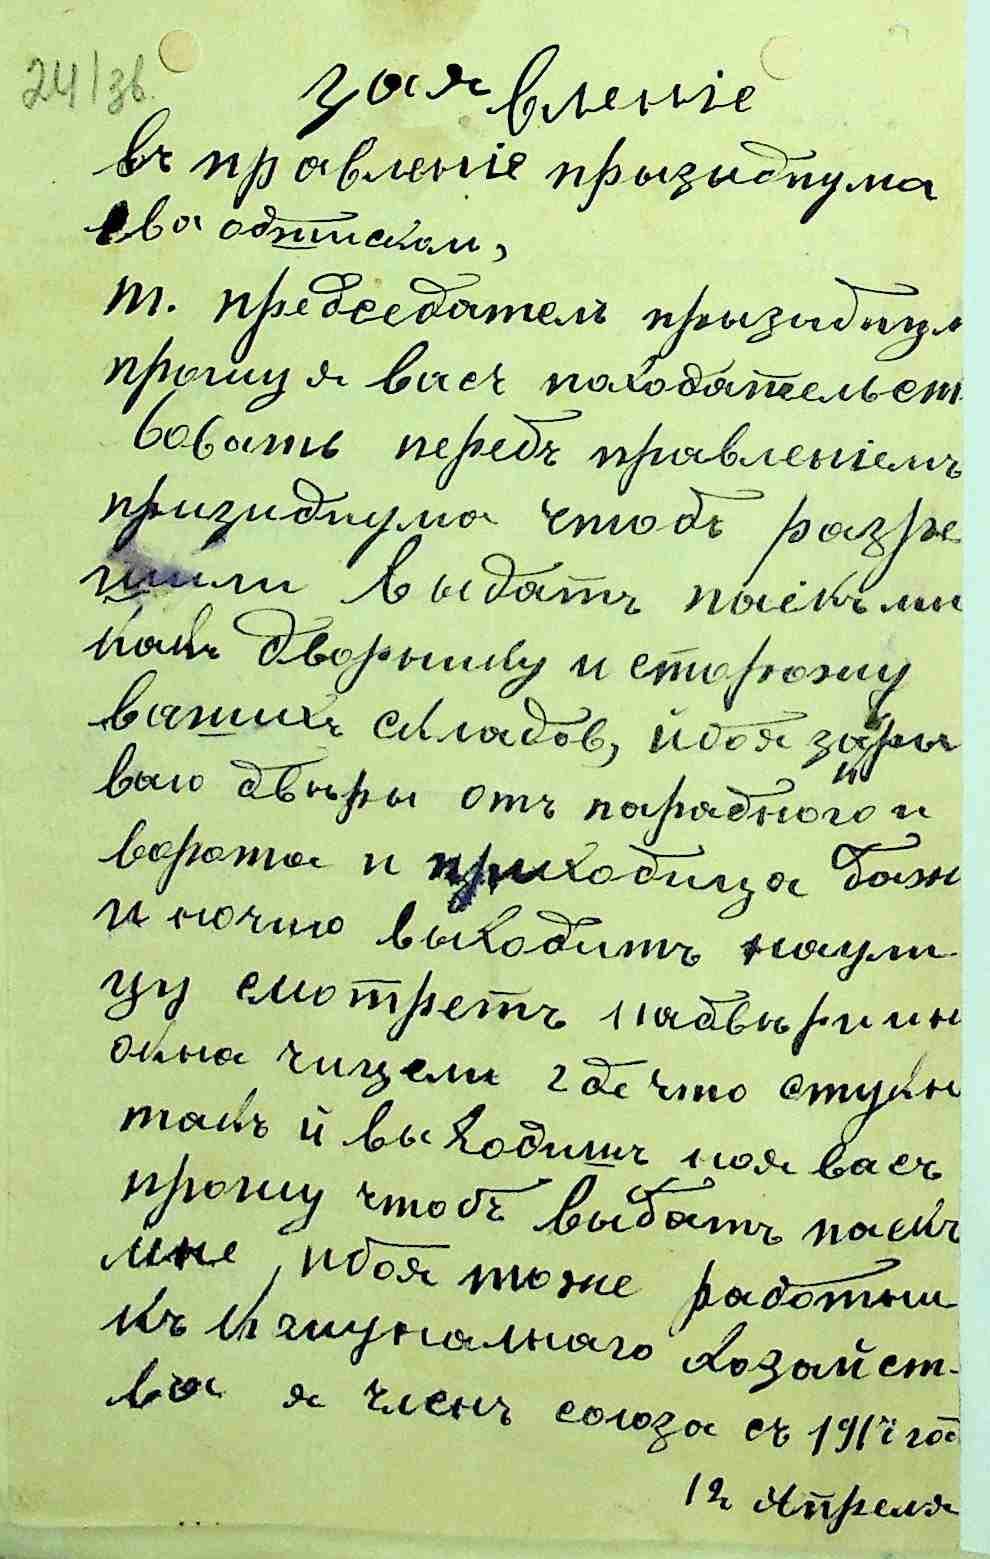 24/зв.
заявленіе
въ правленіе прызидиума
ева обтиском,
т. председатель прызидиум
прошу я васъ походательст
вовать передъ правленіемъ
призидиума чтобъ разре
шили выдать паекъ мн
какъ дворныку и сторожу
вашихъ складов, ибоя закры
ваю двьры отъ парадного и
ворота и приходица даж
и ночию выходитъ наули
цу смотреть надвьри ин
окна чицели где что стукн
такъ й выходишъ ноя васъ
прошу чтобъ выдать паекъ
мне, ибоя тоже работни
къ камуналнаго хозайст-
ва я членъ союза съ 1917 год
12 Апреля